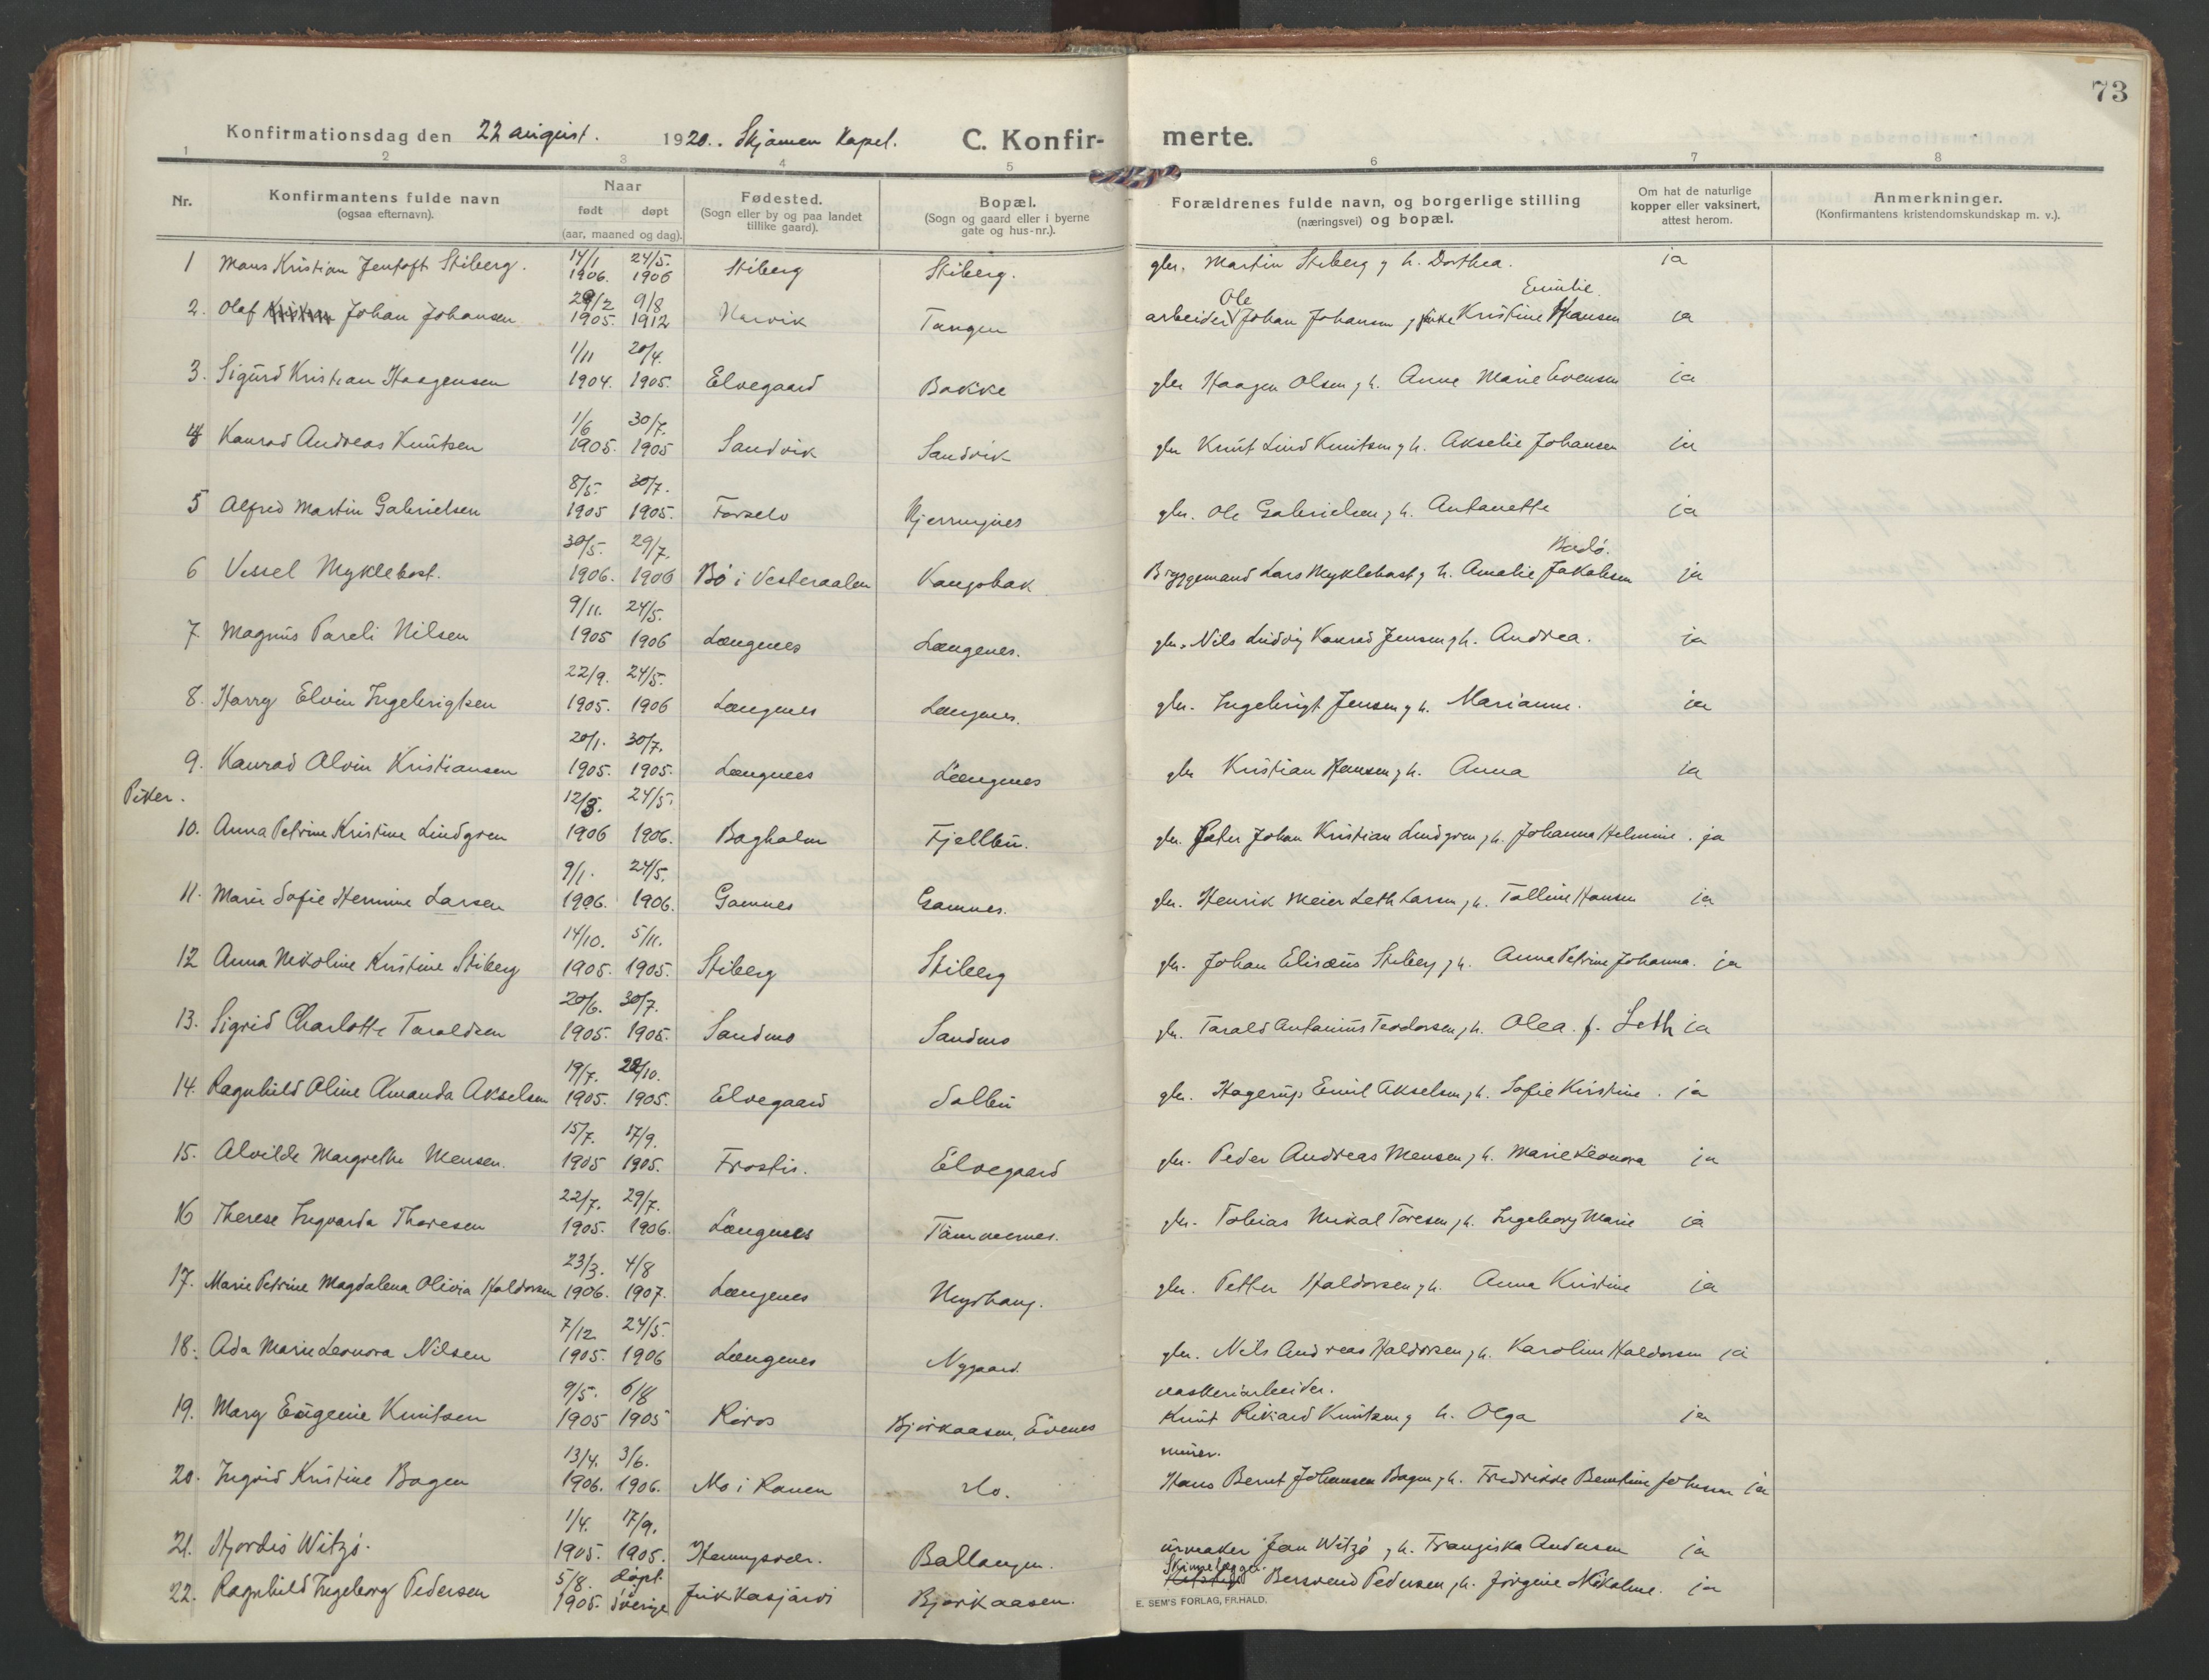 73
Konfirmationsdag den 22 august. 1920. Skjomen Kapel. C. Konfir- merte.
1 2 3 4 5 6 7 8
Nr. Konfirmantens fulde navn (ogsaa efternavn). Naar født døpt (aar, maaned og dag). Fødested. (Sogn eller by og paa landet tillike gaard). Bopæl. (Sogn og gaard eller i byerne gate og hus-nr.). Forældrenes fulde navn, og borgerlige stilling (næringsvei) og bopæl. Om hat de naturlige kopper eller vaksinert, attest herom. Anmerkninger. (Konfirmantens kristendomskundskap m. v.).
1 Mons Kristian Jentoft Stiberg. 14/1 1906. 24/5. 1906 Stiberg Stiberg. gbr. Martin Stiberg g h. Dorthea. ja
2. Olaf Johan Johansen 1905. 9/8 1912 Narvik Tangen arbeider Ole Johan Johansen Kristine Emilie Hansen ja
3. Sigurd Kristian Haagensen 1/11 1904. 20/4. 1905. Elvegaard Bakke gbr Haagen Olsen g h. Anne Marie Evensen ja
4 Konrad Andreas Knutsen 1/6 1905. 30/7. 1905 Sandvik Sandvik gbr Knut Lind Knutsen g h. Akselie Johansen ja
5 Alfred Martin Gabrielsen 8/5. 1905 30/7. 1905. Forselv Kjerringnes gbr. Ole Gabrielsen g h. Antonette ja
6 Vessel Myklebost. 30/5. 1906. 29/7. 1906 Bø i Vesteraalen Kongsbak Bryggemand Lars Myklebost g h. Amalie Jakobsen Bodø. ja
7 Magnus Pareli Nilsen 9/11. 1905 24/5. 1906 Længenes Længenes. gbr. Nils Ludvig Konrad Jensen g h. Andrea. ja
8. Harry Elvin Ingebrigtsen 22/9. 1905. 24/5. 1906 Længenes Længenes. gbr. Ingebrigt Jensen g h. Marianne. ja
9. Konrad Alvin Kristiansen 20/1. 1905. 30/7. 1905. Længenes Længenes gbr Kristian Hansen g h. Anna ja
Piker.
10. Anna Petrine Kristine Lindgren 12/3. 1906 24/5. 1906. Bagholm Fjellbu. gbr. Peter Johan Kristian Lindgren g h. Johanna Helmine. ja
11. Marie Sofie Hermine Larsen 9/1. 1906. 24/5. 1906. Gamnes Gamnes. gbr. Henrik Meier Leth Larsen g h. Talline Hansen ja
12 Anna Nikoline Kristine Stiberg 14/10. 1905. 5/11. 1905. Stiberg Stiberg gbr. Johan Elisæus Stiberg g h. Anna Petrine Johanna. ja
13. Sigrid Charlotte Taraldsen 20/6. 1905. 30/7. 1905. Sandmo Sandmo gbr. Tarald Antonius Teodorsen g h. Olea. f. Leth ja
14. Ragnhild Oline Amanda Akselsen 19/7. 1905. 22/10. 1905. Elvegaard Solbu gbr. Hagerup Emil Akselsen g h. Sofie Kirstine. ja
15. Alvilde Margrethe Mensen. 15/7. 1905 17/9. 1905. Frostis. Elvegaard gbr. Peder Andreas Mensen g h. Marie Leonora ja
16 Therese Ingvarda Thoresen 22/7. 1905. 29/7. 1906. Længenes Tømmernes. gbr. Tobias Mikal Toresen g h. Ingeborg Marie ja
17. Marie Petrine Magdalena Olivia Haldorsen 23/3. 1906. 4/8 1907. Længenes gbr. Petter Haldorsen g h. Anna Kristine ja
18. Ada Marie Leonora Nilsen 7/12 1905. 24/5. 1906 Længenes Nygaard. gbr. Nils Andreas Haldorsen g h. Karoline Haldorsen ja
19. Mary Eugenie Knutsen 9/5. 1905 6/8 1905 Røros Bjørkaasen, Evenes vaskeriarbeider. Knut Rikard Knutsen g h. Olga ja
20. Ingrid Kristine Bagen 13/4. 1906. 3/6. 1906. Mo i Ranen do. murer. Hans Bernt Johansen Bagen g h. Fredrikke Berntine Johnsen ja
21. Hjordis Witzø. 1/4. 1905. 17/9. 1905. Henningsvær. Ballangen. urmaker Jon Witzø g h. Franziska Andersen ja
22. Ragnhild Ingeborg Pedersen 5/8. 1905. døpt. Sverige Jukkasjärvi Bjørkaasen. Skinnelægger. Bersvend Pedersen g h. Jørgine Nikoline. ja
E. SEM'S FORLAG, FR.HALD.